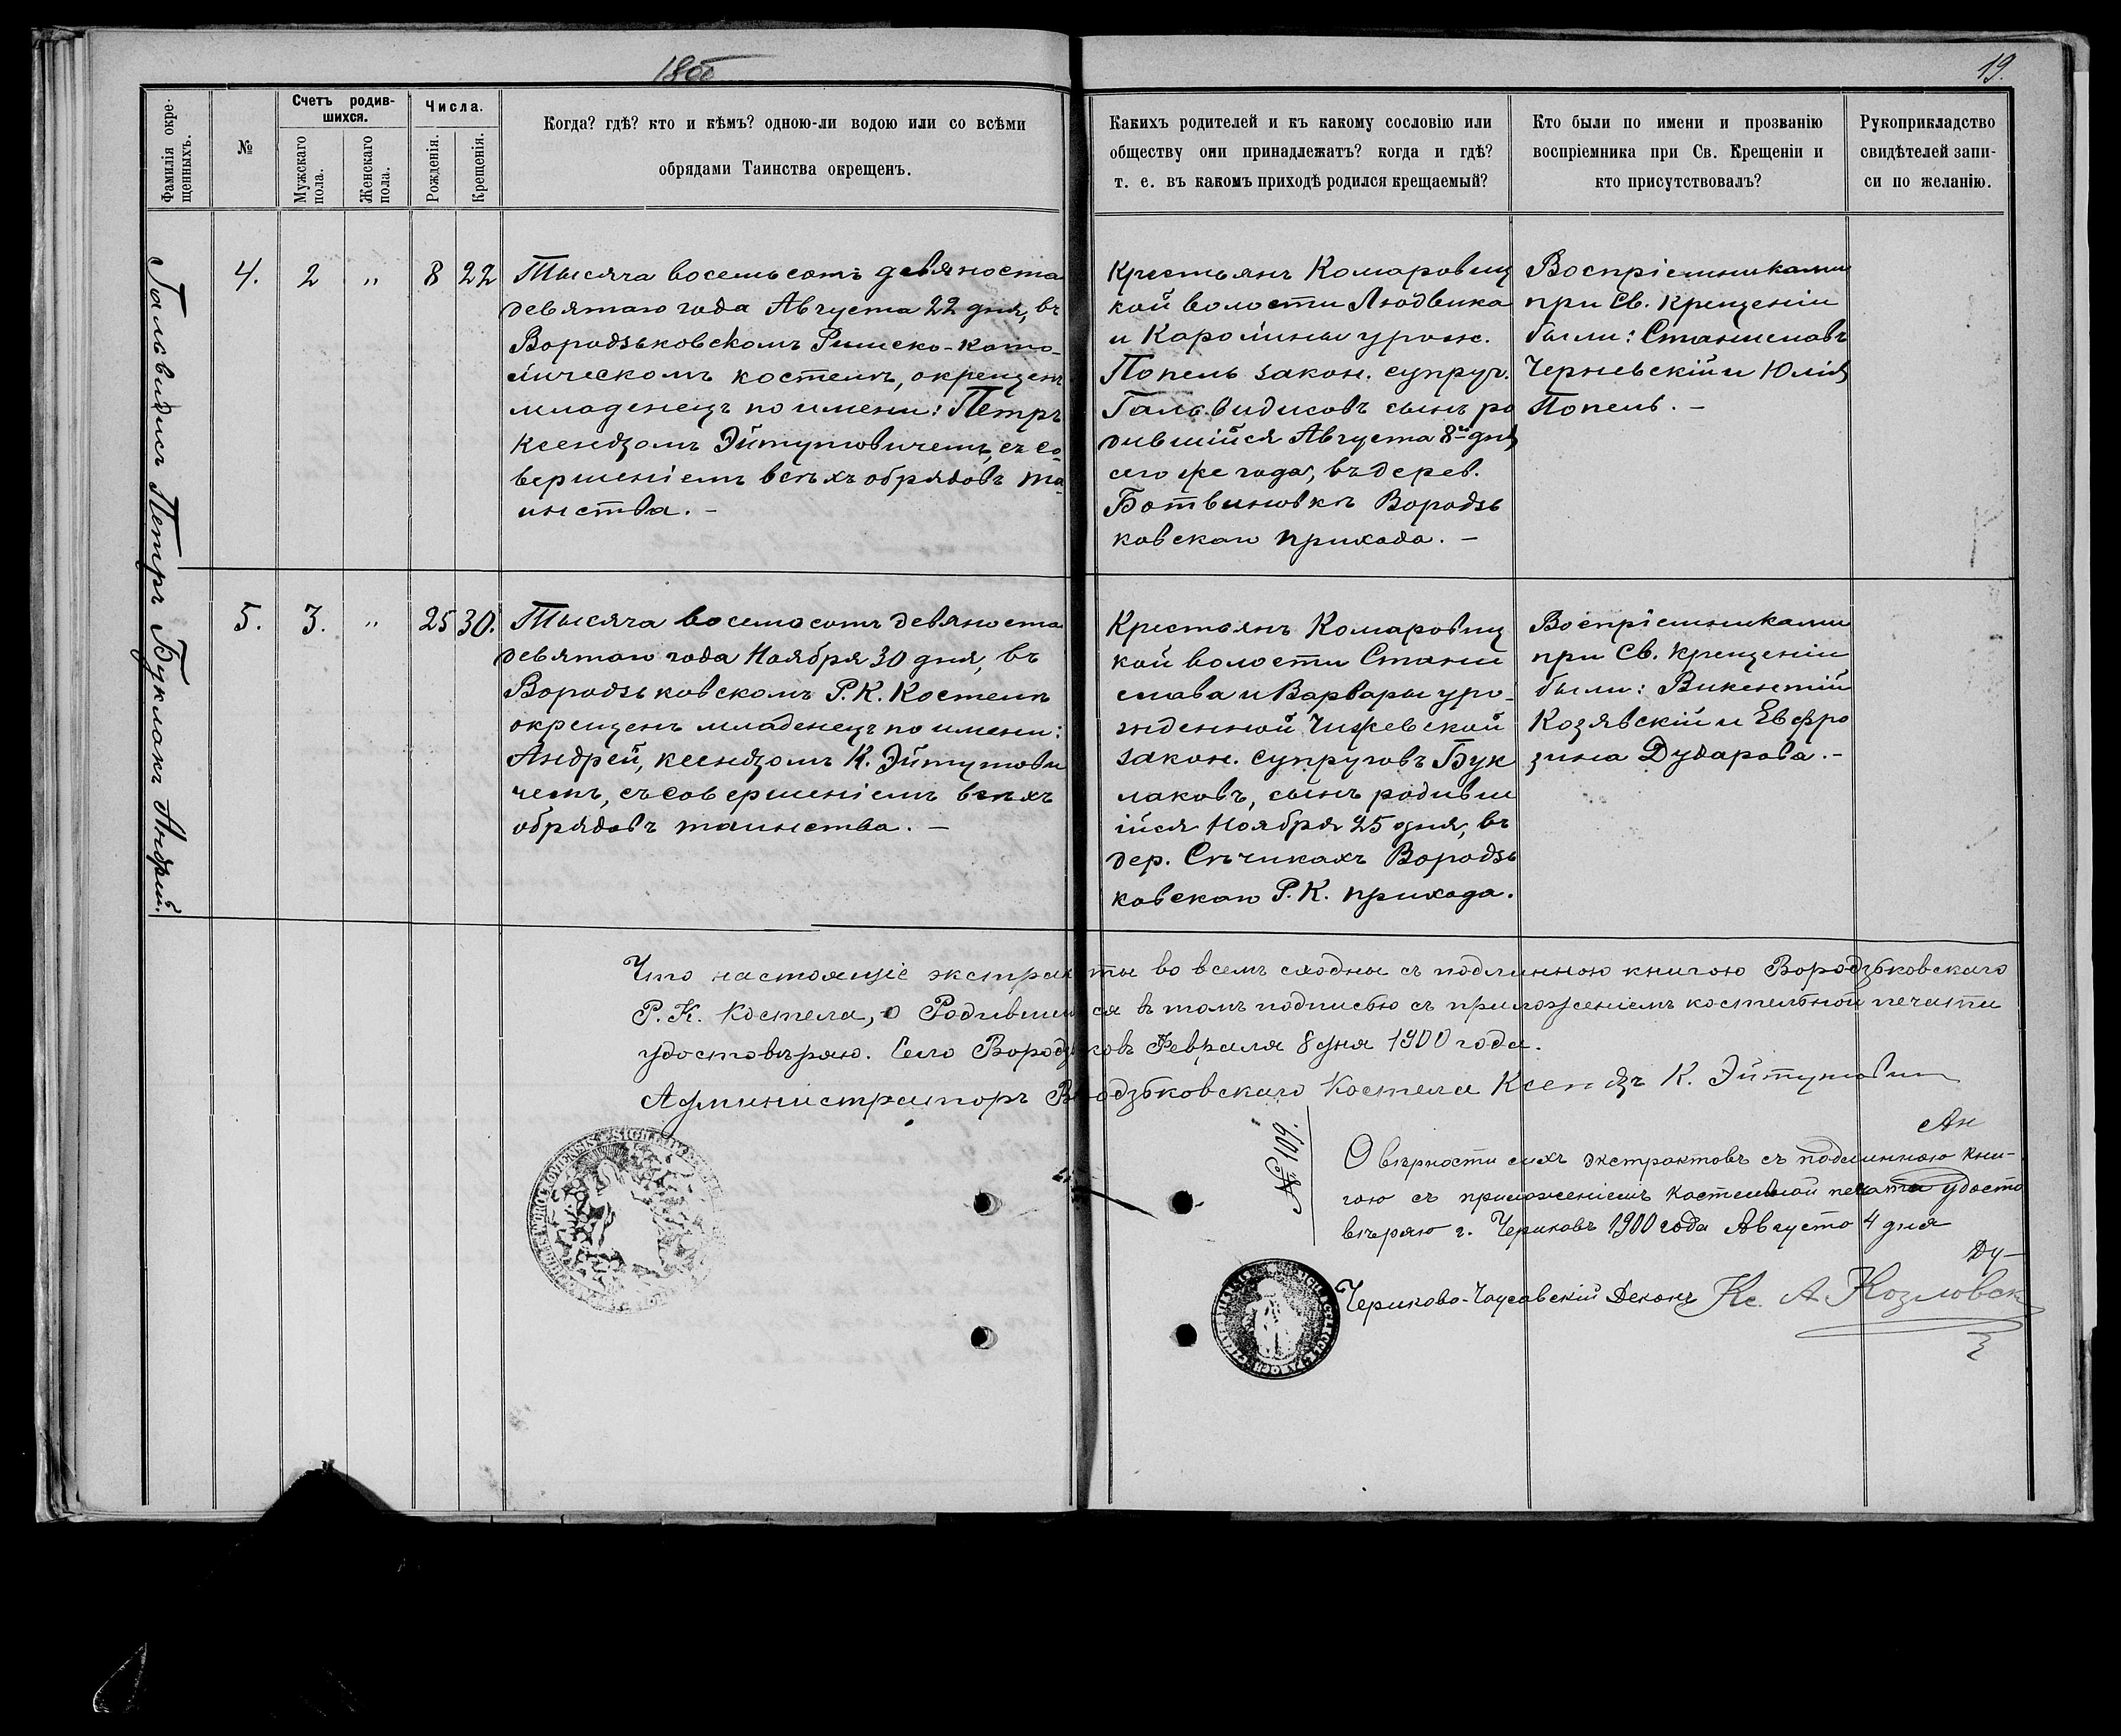 1800
19.
Фамилія окре-
щенныхъ.
№
Счетъ родив-
шихся.
Мужскаго
пола.
Женскаго
пола.
Числа.
Рожденія.
Крещенія.
Когда? гдѣ? кто и кѣмъ? одною-ли водою или со всѣми
обрядами Таинства окрещенъ.
Какихъ родителей и къ какому сословію или
обществу они принадлежатъ? когда и гдѣ?
т. е. въ какомъ приходѣ родился крещаемый?
Кто были по имени и прозванію
воспріемника при Св. Крещеніи и
кто присутствовалъ?
Рукоприкладство
свидѣтелей запи-
си по желанію.
Гальвидисъ Петръ
4.
2
"
8
22
Тысяча восемьсотъ девяноста
девятаго года Августа 22 дня, въ
Вородзьковскомъ Римско-като-
лическомъ костелѣ, окрещенъ
младенецъ по имени: Петръ
ксендзомъ Эйтутовичемъ, съ со-
вершеніемъ всѣхъ обрядовъ та-
инства. -
Крестьянъ Комаровиц
кой волости Людвика
и Каролины урожн.
Попель закон. супруг.
Гальвидисовъ сынъ ро
дившійся Августа 8го дня
сего же года, въ дерев.
Ботвиновкѣ Вородзь
ковскаго прихода. -
Воспріемниками
при Св. крещеніи
были: Станиславъ
Черневскій и Юлія
Попель. -
Буклакъ Андрей.
5.
3.
"
25
30.
Тысяча восемьсотъ девяноста
девятаго года Ноября 30 дня, въ
Вородзьковскомъ Р. К. Костелѣ
окрещенъ младенецъ по имени:
Андрей, ксендзомъ К. Эйтутови
чемъ, съ совершеніемъ всѣхъ
обрядовъ таинства. -
Крестьянъ Комаровиц
кой волости Стани
слава и Варвары уро-
жденной Чижевской
закон. супруговъ Бук
лаковъ, сынъ родивш
ійся Ноября 25 дня, въ
дер. Сѣчикахъ Вородзь
ковскаго Р. К. прихода.
Воспріемниками
при Св. крещеніи
были: Викентій
Козявскій и Евфро
зина Дударова. -
Что настоящіе экстракты во всемъ сходны съ подлинною книгою Вородзьковскаго
Р. К. Костела, о Родившихся въ томъ подписью съ приложеніемъ костельной печати
удостовѣряю. Село Вородзьковъ Февраля 8 дня 1900 года.
Администраторъ Вородзьковскаго Костела Ксендзъ К. Эйтутович
№ 109.
О вѣрности сихъ экстрактовъ съ подлинною кни-
гою съ приложеніемъ костельной печати удосто
вѣряю г. Чериковъ 1900 года Августа 4 дня
Чериково-Чаусавскій Деканъ Кс. А Козловск